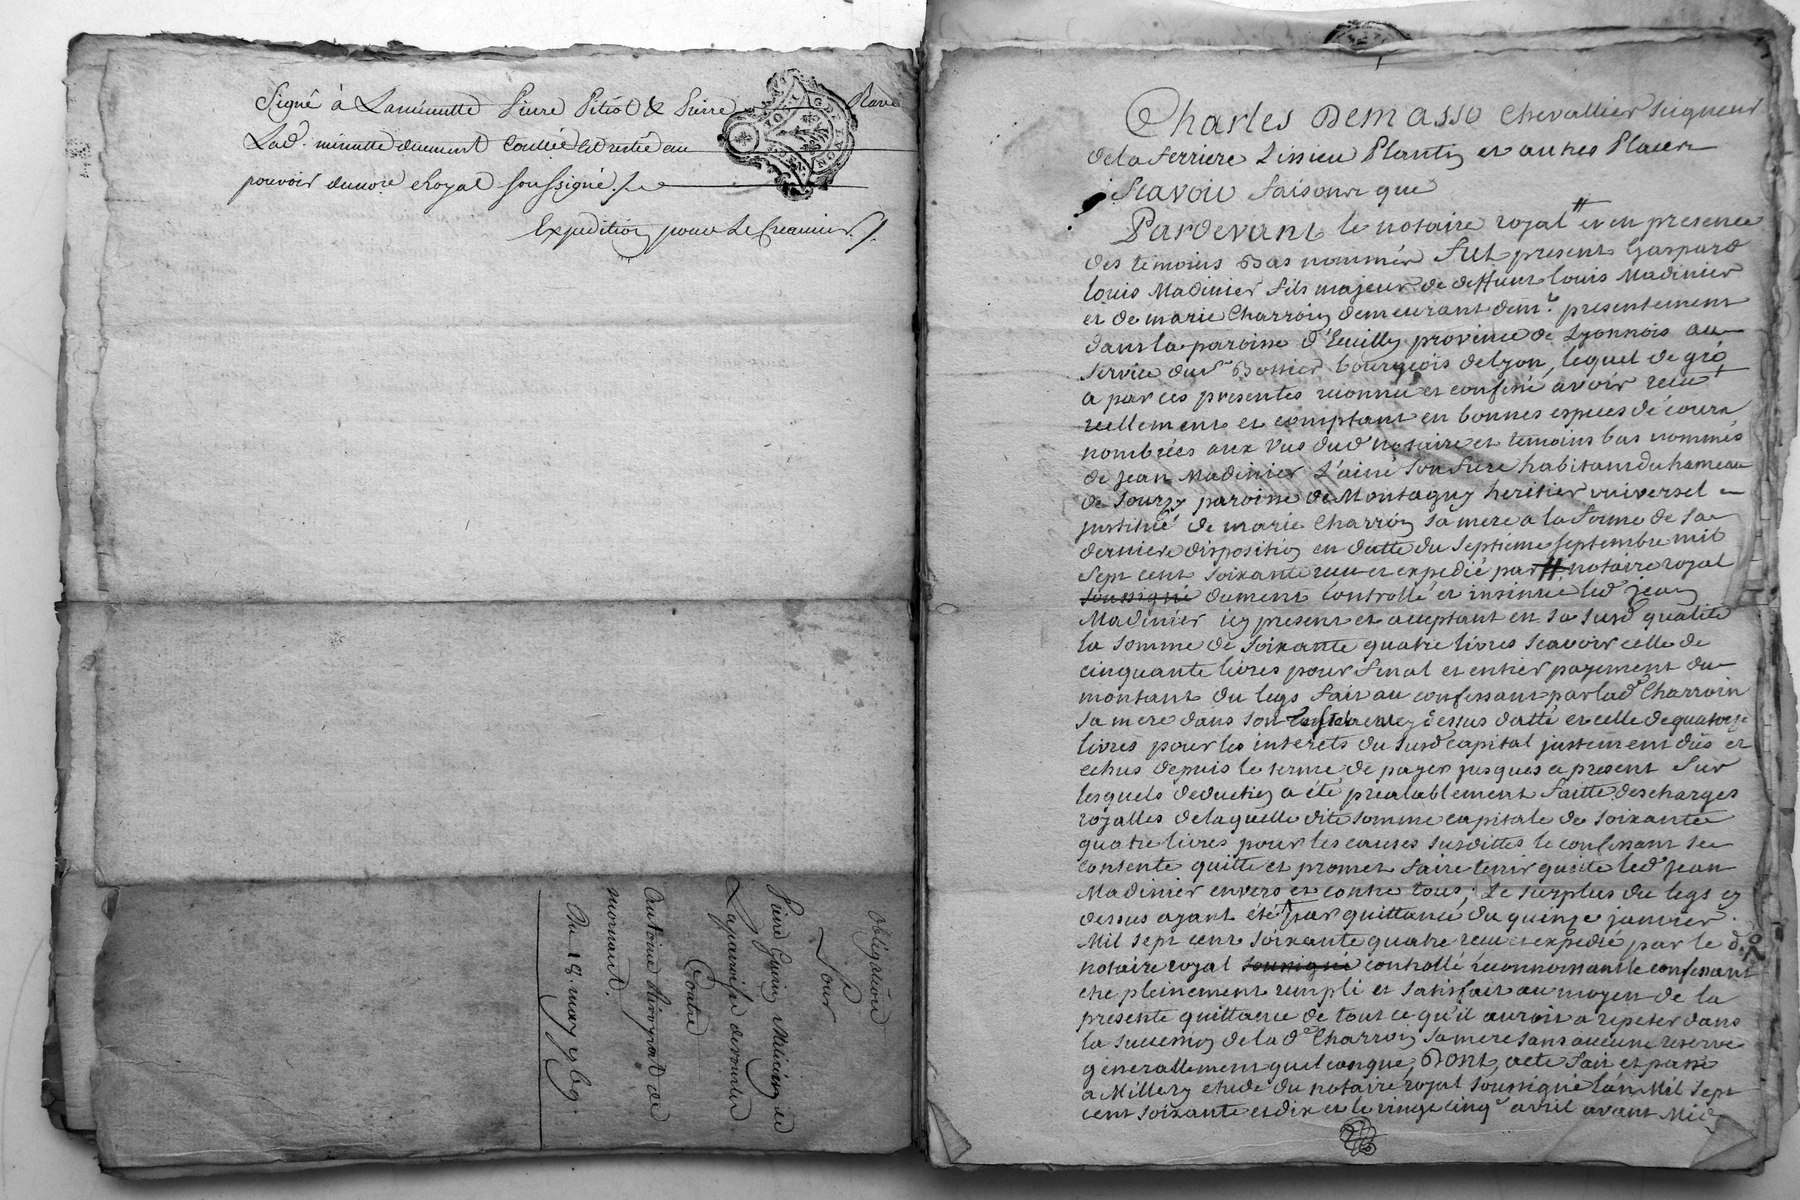 Signé à Laminutte Pierre Pitiot & Pierre
Lad. minutte duement Coullée et restée au
pouvoir dunore Royal soussigné ./.
Expedition pour Le Creancier ./.
obligation
Pour
Pierre Guerin
Contre
Antoine
mornant.
Du 18. may 1769.
Charles Demasso Chevallier Seigneur
de la ferriere Lissieu Plantin et autres Places
Scavoir faisons que
Pardevant le notaire royal # et en presence
des temoins Bas nommés fut present Gaspard
louis Madinier fils majeur de deffunt louis Madinier
et de marie Charroin demeurant presentement
dans la paroisse d'Ecuilly province de Lyonnois au
service du Sr. Bonnier bourgeois de lyon, lequel de gré
a par ces presentes reconnu et confessé avoir receu
reellement et comptant en bonnes especes de cours
nombrées aux vus dud. notaire et temoins bas nommés
de jean Madinier L'ainé son frere habitant du hameau
de Sourzy paroisse de Montagny heritier universel
institué de marie Charroin sa mere a la forme de sa
derniere disposition en datte du septieme septembre mil
sept cent soixante receu et expedié par # notaire royal
soussigné dument controllé et insinuée led. jean
Madinier icy present et acceptant en sa susd. qualité
la somme de soixante quatre livres scavoir celle de
cinquante livres pour final et entier payement du
montant du legs fait au confessant par lad. Charroin
sa mere dans son testament cy dessus datté et celle de quatorze
livres pour les interets du susd. capital justement dûs et
echus depuis le terme de payer jusques a present sur
lesquels deduction a été prealablement faitte des charges
royalles de laquelle dite somme capitale de soixante
quatre livres pour les causes susdittes le confessant se
contente quitte et promet faire tenir quitte led. jean
Madinier envers et contre tous; Le surplus du legs cy
dessus ayant été par quittance du quinze janvier
Mil sept cent soixante quatre receu et expedié par le d.
notaire royal soussigné controllé reconnoissant le confessant
etre pleinement rempli et satisfait au moyen de la
presente quittance de tout ce qu'il auroit a repeter dans
la succession de la de. Charroin sa mere sans aucune reserve
generallement quelconque, Dont acte fait et passé
a Millery etude du notaire royal soussigné l'an Mil sept
cent soixante et dix et le vingt cinq avril avant Midy